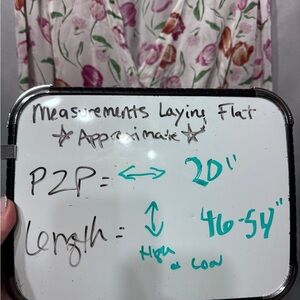 Measurements Laying Flat
☆ Approximate ☆
P2P = ↔ 20"
Length = ↕ 46-54"
High & Low